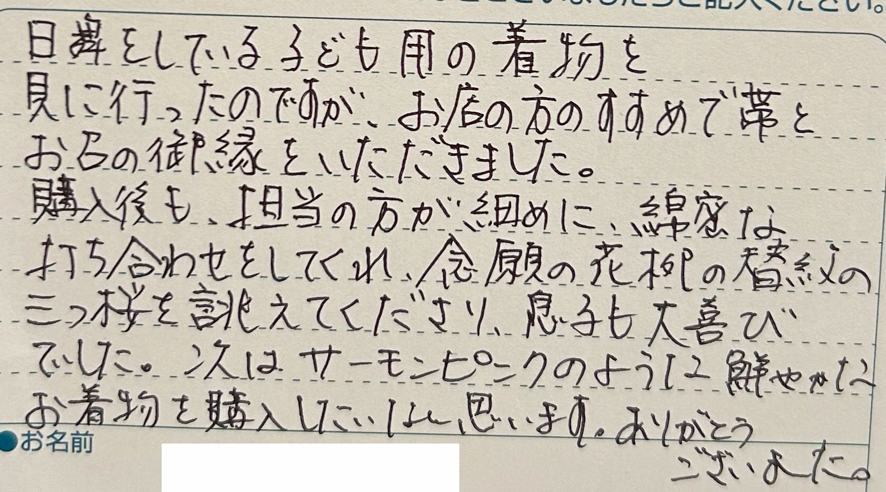 日舞をしている子ども用の着物を
見に行ったのですが、お店の方のすすめで帯と
お召の御縁をいただきました。
購入後も、担当の方が細めに、綿密な
打ち合わせをしてくれ、念願の花柳の替紋の
三つ桜を誂えてくださり、息子も大喜び
でした。次はサーモンピンクのように鮮やかな
お着物を購入したいと思います。ありがとう
ございました。
●お名前